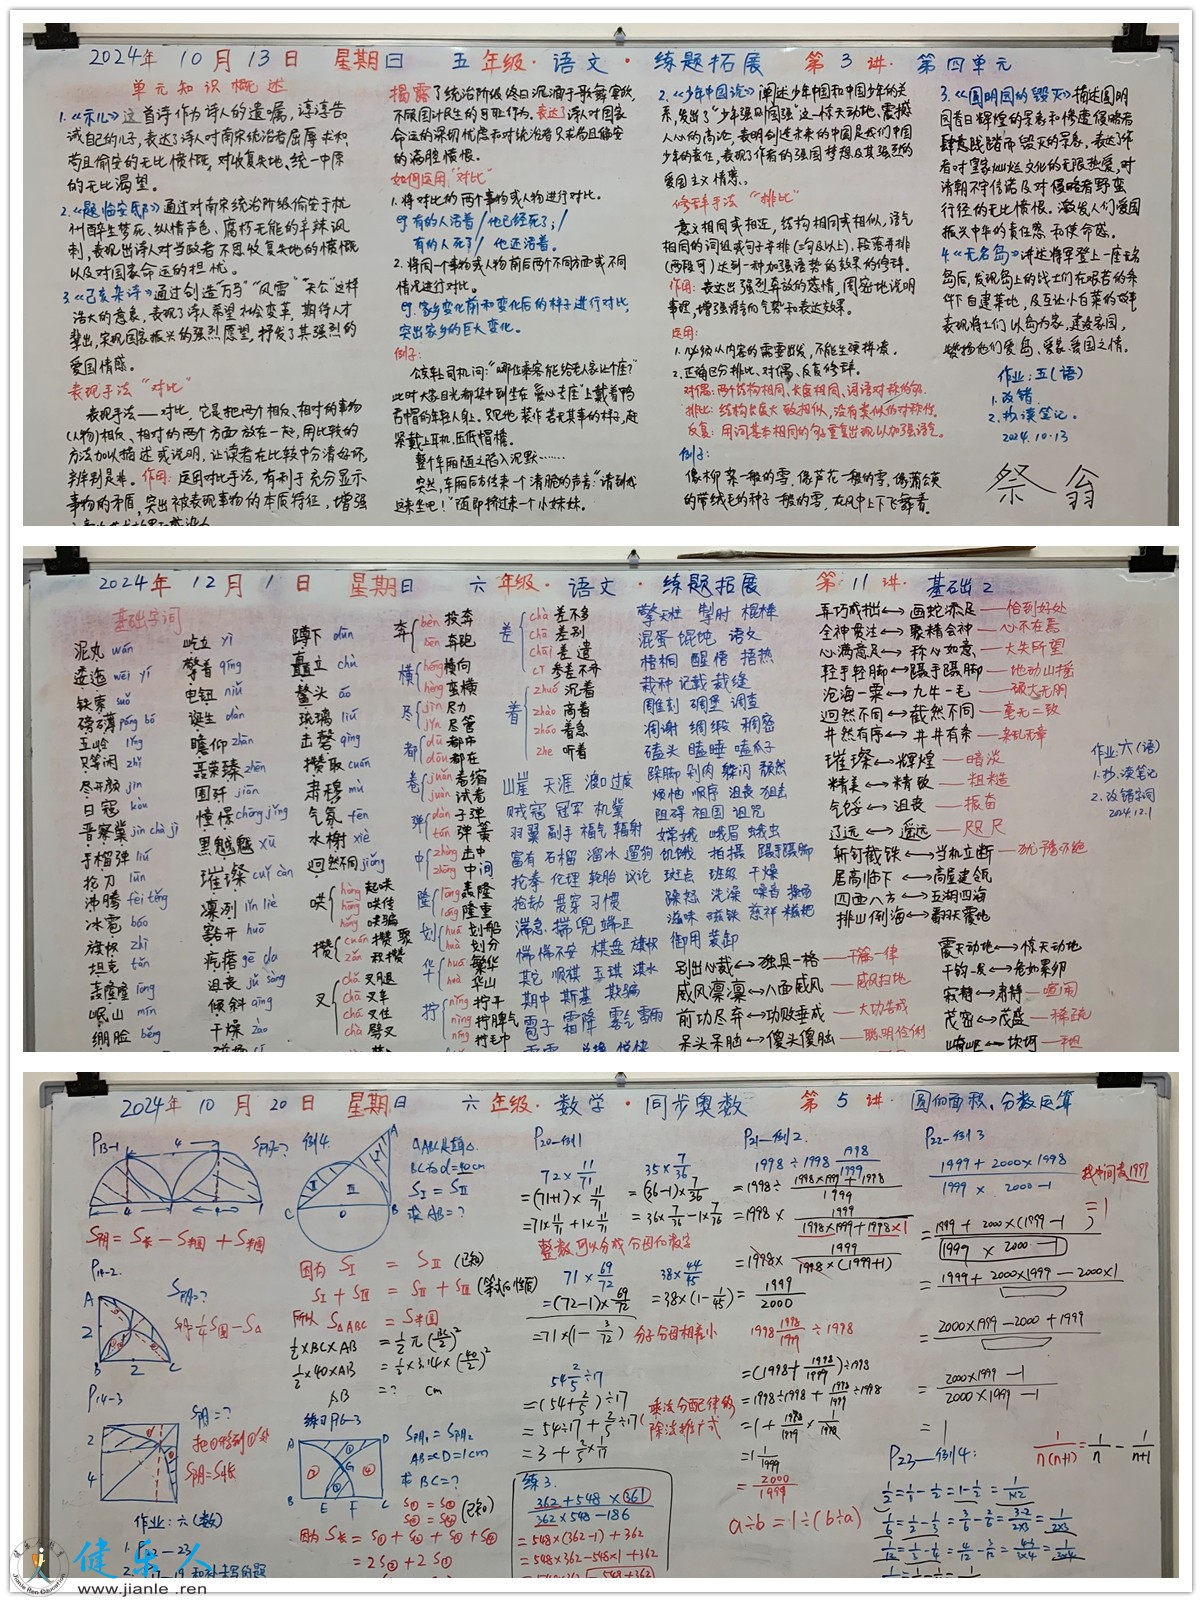 2024年 10月13日 星期日 五年级·语文·练题拓展 第3讲·第四单元
单元知识概述
1.《示儿》这首诗作为诗人的遗嘱,谆谆告
诫自己的儿子,表达了诗人对南宋统治者屈辱求和,
苟且偷安的无比愤慨,对收复失地、统一中原
的无比渴望。
2.《题临安邸》通过对南宋统治阶级偷安于杭
州醉生梦死、纵情声色、腐朽无能的辛辣讽
刺,表现出诗人对当政者不思收复失地的愤慨
以及对国家命运的担忧。
3.《己亥杂诗》通过创造"万马""风雷""天公"这样
浩大的意象,表现了诗人希望社会变革,期待人才
辈出,实现国家振兴的强烈愿望,抒发了其强烈的
爱国情感。
表现手法"对比"
表现手法——对比,它是把两个相反、相对的事物
(人物)相反、相对的两个方面放在一起,用比较的
方法加以描述或说明,让读者在比较中分清好坏,
辨别是非。作用:运用对比手法,有利于充分显示
事物的矛盾,突出被表现事物的本质特征,增强
揭露了统治阶级终日沉湎于歌舞宴饮,
不顾国计民生的可耻行为。表达了诗人对国家
命运的深切忧虑和对统治者只求苟且偷安
的满腔愤恨。
如何运用"对比"
1.将对比的两个事物或人物进行对比。
有的人活着/他已经死了;/
有的人死了/他还活着。
2.将同一个事物或人物前后两个不同方面或不同
情况进行对比。
家乡变化前和变化后的样子进行对比,
突出家乡的巨大变化。
例子:
公交车司机问:"哪位乘客能给老人家让个座?"
此时大家目光都集中到坐在"爱心专座"上戴着鸭
舌帽的年轻人身上。只见他装作若无其事的样子,赶
紧戴上耳机,压低帽檐。
整个车厢随之陷入沉默……
突然,车厢后方传来一个清脆的声音:"请到我
这来坐吧!"随即挤过来一个小妹妹。
2.《少年中国说》阐述少年中国和中国少年的关
系,发出了"少年强则国强"这一惊天动地、震撼
人心的高论,表明创造未来的中国是我们中国
少年的责任,表现了作者的强国梦想及其强烈的
爱国主义情感。
修辞手法"排比"
意义相同或相近,结构相同或相似,语气
相同的词组或句子并排(三句及以上),段落并排
(两段可)达到一种加强语势的效果的修辞。
作用:表达出强烈奔放的感情,周密地说明
事理,增强语言的气势和表达效果。
运用:
1.必须从内容的需要出发,不能生硬拼凑。
2.正确区分排比、对偶、反复修辞。
对偶:两个结构相同、长短相同、词语对称的句。
排比:结构长度大致相似,没有类似的对称性。
反复:用词基本相同的句子重复出现以加强语气。
例子:
像柳絮一般的雪,像芦花一般的雪,像蒲公英
的带绒毛的种子一般的雪,在风中上下飞舞着。
3.《圆明园的毁灭》描述圆明
园昔日辉煌的景象和惨遭侵略者
肆意践踏而毁灭的景象,表达了作
者对皇家灿烂文化的无限热爱,对
清朝不守信诺及对侵略者野蛮
行径的无比愤恨。激发人们爱国
振兴中华的责任感和使命感。
4.《无名岛》讲述将军登上一座无名
岛后,发现岛上的战士们在艰苦的条
件下自建菜地,及互让小白菜的故事,
表现将士们以岛为家,建设家园,
赞扬他们爱岛、爱家、爱国之情。
作业:五(语)
1.改错
2.抄读笔记。
2024.10.13
祭 翁
2024年 12月1日 星期日 六年级·语文·练题拓展 第11讲·基础2
基础字词
泥丸 wán
逶迤 wēi yí
铁索 suǒ
磅礴 páng bó
五岭 lǐng
只等闲 zhǐ
尽开颜 jìn
日寇 kòu
晋察冀 jìn chá jì
手榴弹 liú
抡刀 lūn
沸腾 fèi téng
冰雹 báo
旗帜 zhì
坦克 tǎn
轰隆隆 lōng
岷山 mín
绷脸 běng
屹立 yì
擎着 qíng
电钮 niǔ
诞生 dàn
瞻仰 zhān
聂荣臻 zhēn
围歼 jiān
憧憬 chōng jǐng
黑黢黢 xū
璀璨 cuǐ càn
凛冽 lǐn liè
豁开 huō
疙瘩 gē da
沮丧 jǔ sàng
倾斜 qīng
干燥 zào
蹲下 dūn
矗立 chù
鳌头 áo
琉璃 liú
击磬 qìng
攒取 cuán
肃穆 mù
气氛 fēn
水榭 xiè
迥然不同 jiǒng
哄 hōng 起哄
hǒng 哄传
hǒng 哄骗
攒 cuán 攒聚
zǎn 积攒
叉 chǎ 叉腿
chā 叉车
chá 叉住
chà 劈叉
奔 bèn 投奔
bēn 奔跑
横 héng 横向
hèng 蛮横
尽 jìn 尽力
jǐn 尽管
都 dū 都市
dōu 都在
卷 juǎn 卷缩
juàn 试卷
弹 dàn 子弹
tán 弹簧
中 zhòng 击中
zhōng 中间
隆 lōng 轰隆
lóng 隆重
划 huá 划船
huà 划分
华 huá 繁华
huà 华山
拧 níng 拧干
nìng 拧脾气
nǐng 拧毛巾
差 chà 差不多
chā 差别
chāi 差遣
cī 参差不齐
着 zhuó 沉着
zhāo 高着
zháo 着急
zhe 听着
山崖 天涯 渡口 过度
贼寇 冠军 机冀
羽翼 副手 福气 辐射
富有 石榴 溜冰 遛狗
抢拳 伦理 轮胎 议论
抢劫 贯穿 习惯
湍急 揣兜 端正
惴惴不安 棋盘 旗帜
其它 顺祺 玉琪 淇水
期中 斯基 欺骗
雹子 霜降 雾气 雷雨
擎天柱 掣肘 棍棒
混蛋 馄饨 语文
梧桐 醒悟 捂热
栽种 记载 裁缝
雕刻 碉堡 调查
凋谢 绸缎 稠密
磕头 瞌睡 嗑瓜子
跺脚 剁肉 躲闪 颓然
烦恼 顺序 沮丧 狙击
阻碍 祖国 诅咒
嫦娥 峨眉 蛾虫
饥饿 拍摄 蹑手蹑脚
斑点 班级 干燥
躁怒 洗澡 噪音 操场
滋味 磁铁 慈祥 糍粑
御用 装卸
弄巧成拙↔画蛇添足—恰到好处
全神贯注↔聚精会神—心不在焉
心满意足↔称心如意—大失所望
轻手轻脚↔蹑手蹑脚—地动山摇
沧海一粟↔九牛一毛—硕大无朋
迥然不同↔截然不同—毫无二致
井然有序↔井井有条—杂乱无章
璀璨↔辉煌—暗淡
精美↔精致—粗糙
气馁↔沮丧—振奋
辽远↔遥远—咫尺
斩钉截铁↔当机立断—犹豫不绝
居高临下↔高屋建瓴
四面八方↔五湖四海
排山倒海↔翻天覆地
别出心裁↔独具一格—千篇一律
威风凛凛↔八面威风—威风扫地
前功尽弃↔功败垂成—大功告成
呆头呆脑↔傻头傻脑—聪明伶俐
震天动地↔惊天动地
千钧一发↔危如累卵
寂静↔肃静—喧闹
茂密↔茂盛—稀疏
崎岖↔坎坷—平坦
作业:六(语)
1.抄读笔记
2.改错字词
2024.12.1
2024年 10月20日 星期日 六年级·数学·同步奥数 第5讲·圆的面积、分数运算
P13-1
4
S阴=?
4 4
S阴=S长-S半圆+S半圆
P14-2.
A
2
B 2 C
S阴=?
S阴=¼S圆-S△
P14-3
2
4
S阴=?
S阴=S长
作业:六(数)
1.P22—23
例4.
A
C O B
I II III
△ABC是直角△.
BC为d=40cm
SⅠ=SⅡ
求AB=?
因为 SⅠ = SⅡ (已知)
SⅠ+SⅢ = SⅡ+SⅢ (等式的性质)
所以 S△ABC = S半圆
½×BC×AB =½π(BC/2)²
½×40×AB =½×3.14×(40/2)²
AB =? cm
练习P16-3
A D
G
B E F C
S阴1=S阴2
AB=CD=1cm
求BC=?
S①=S②
S③=S④ (已知)
因为 S长=S①+S②+S③+S④
=2S①+2S③
P20-例1
72×11/71
=(71+1)×11/71
=71×11/71+1×11/71
35×7/36
=(36-1)×7/36
=36×7/36-1×7/36
整数可以分成分母的数字
71×69/72
=(72-1)×69/72
=71×(1-3/72)
38×44/45
=38×(1-1/45)
分子分母相差小
54 2/5÷17
=(54+2/5)÷17
=54÷17+2/5÷17
=3+2/5×1/17
乘法分配律的
除法推广式
练3.
362+548×361
362×548-186
=548×(362-1)+362
=548×362-548×1+362
P21-例2.
1998÷1998 1998/1999
=1998÷(1998×1999+1998)/1999
=1998×1999/(1998×1999+1998×1)
=1998×1999/(1998×(1999+1))
=1999/2000
1998 1998/1999÷1998
=(1998+1998/1999)÷1998
=1998÷1998+1998/1999÷1998
=1+1998/1999×1/1998
=1 1/1999
=2000/1999
a÷b=1÷(b÷a)
P22-例3
1999+2000×1998
1999×2000-1
找中间数1999
=1
=1999+2000×(1999-1)
1999×2000-1
=1999+2000×1999-2000×1
=2000×1999-2000+1999
=2000×1999-1
2000×1999-1
=1
P23-例4:
1/n(n+1)=1/n-1/n+1
1/2=1/1-1/2=1-1/2=1/1×2
1/6=1/2-1/3=3/6-2/6=3-2/2×3=1/2×3
1/12=1/3-1/4=4/12-3/12=4-3/3×4=1/3×4
健乐人
www.jianle.ren